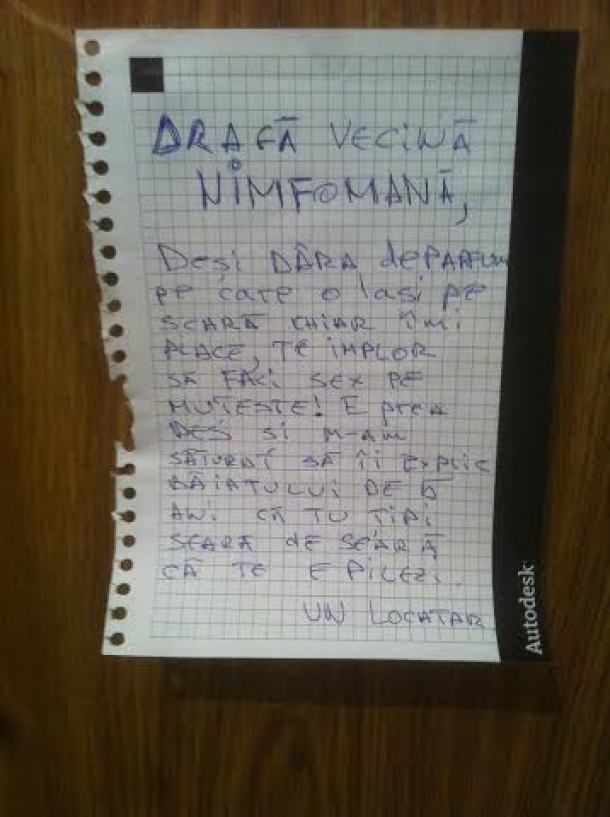 DRAGĂ VECINĂ
NIMFOMANĂ,
Deşi DÂRA de PARFUM
pe care o laşi pe
SCARĂ CHIAR îmi
PLACE, TE IMPLOR
SĂ FACI SEX PE
MUTEŞTE! E prea
DES şi M-AM
SĂTURAT SĂ îi EXPLIC
BĂIATULUI DE 6
ANi CĂ TU ŢIPI
SEARĂ de SEARĂ
CĂ TE EPILEZI.
UN LOCATAR
Autodesk